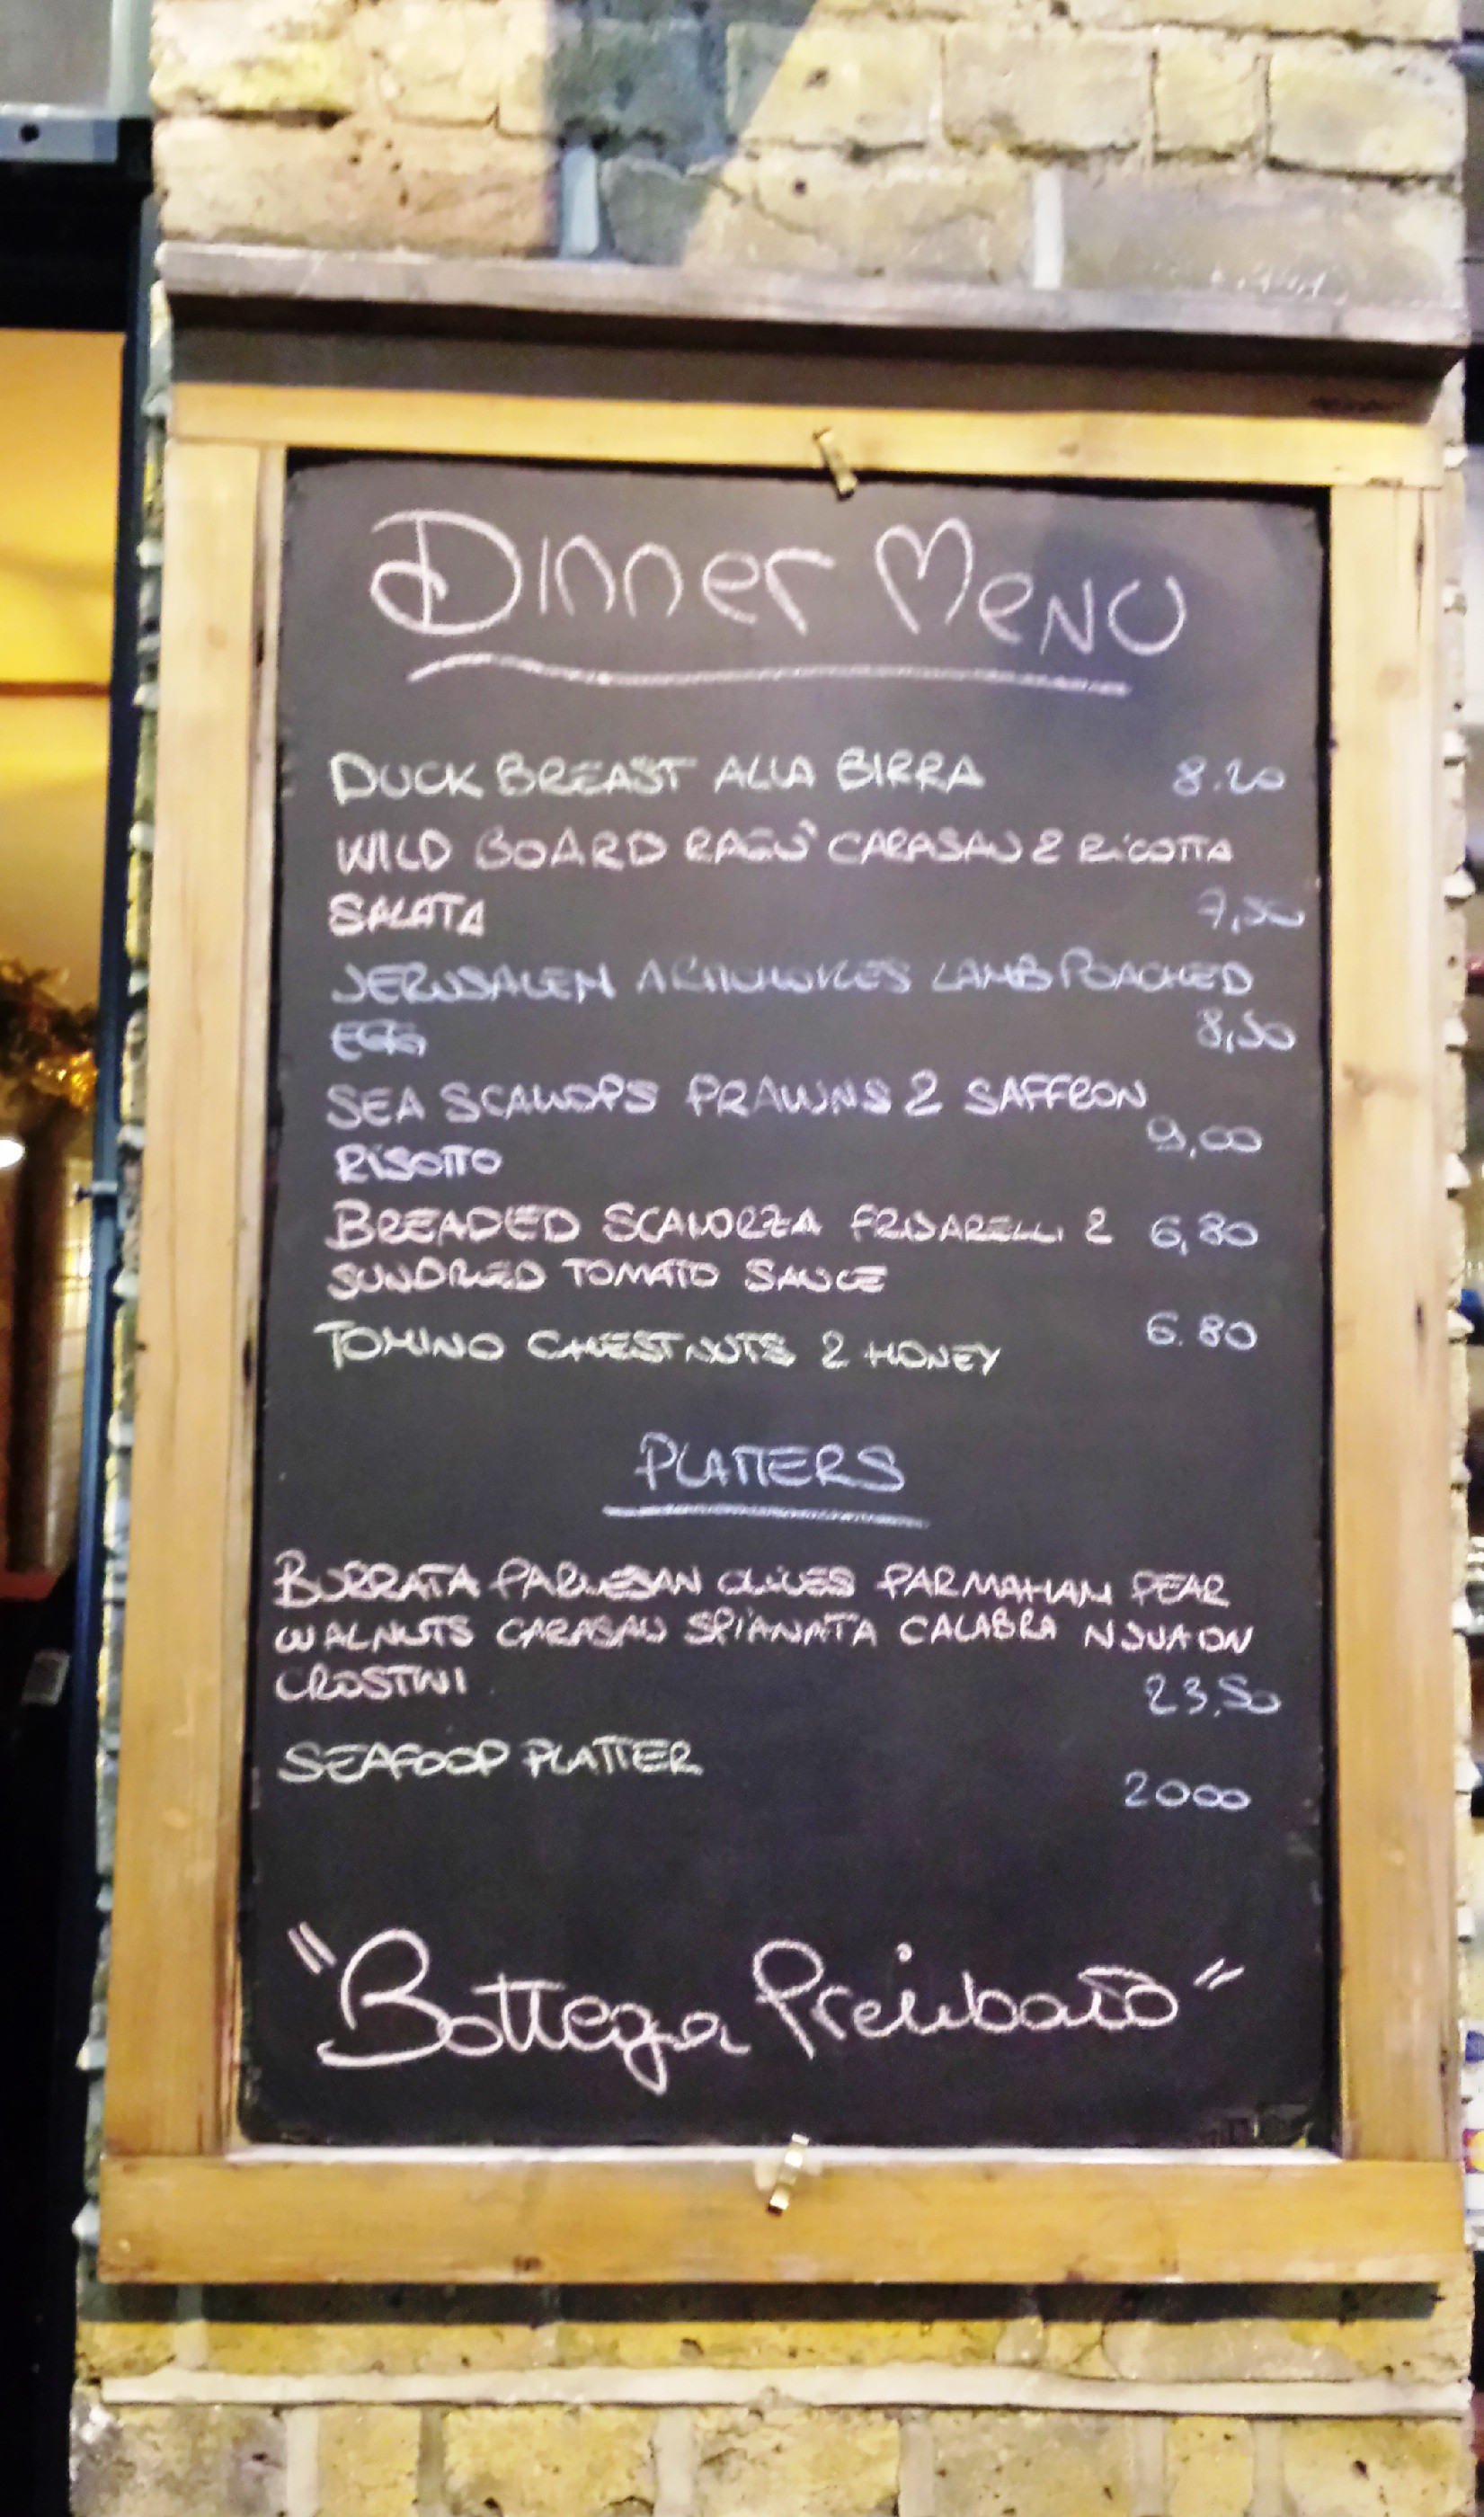 Dinner Menu
DUCK BREAST ALLA BIRRA 8.20
WILD BOARD RAGÙ CARASAU & RICOTTA
SALATA 7,50
JERUSALEM LAMB POACHED
EGG 8,50
SEA SCALLOPS PRAWNS & SAFFRON
RISOTTO 9,00
BREADED SCAMORZA FRIJARELLI & 6,80
SUNDRIED TOMATO SAUCE
TOMINO CHESTNUTS & HONEY 6.80
PLATTERS
BURRATA PARMESAN OLIVES PARMAHAM PEAR
WALNUTS CARASAU SPIANATA CALABRA NJUA ON
CROSTINI 23,50
SEAFOOD PLATTER
2000
"Bottega Prelibato"